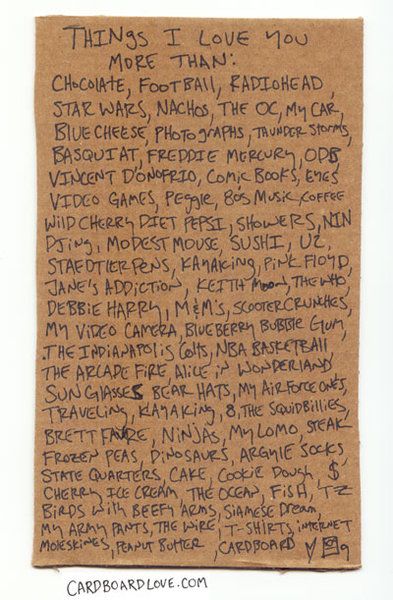 THINGS I LOVE YOU
MORE THAN:
CHOCOLATE, FOOTBALL, RADIOHEAD,
STAR WARS, NACHOS, THE OC, MY CAR,
BLUE CHEESE, PHOTOGRAPHS, THUNDER STORMS,
BASQUIAT, FREDDIE MERCURY, ODB
VINCENT D'ONOFRIO, COMIC BOOKS, EYES
VIDEO GAMES, PEGGIE, 80s MUSIC, COFFEE
WILD CHERRY DIET PEPSI, SHOWERS, NIN
DJing, MODEST MOUSE, SUSHI, U2,
STAEDTLER PENS, KAYAKING, PINK FLOYD,
JANE'S ADDICTION, KEITH MOON, THE WHO,
DEBBIE HARRY, M&M'S, SCOOTER CRUNCHES,
MY VIDEO CAMERA, BLUEBERRY BUBBLE GUM,
THE INDIANAPOLIS COLTS, NBA BASKETBALL
THE ARCADE FIRE, ALICE IN WONDERLAND
SUNGLASSES BEAR HATS, MY AIR FORCE ONES,
TRAVELING, KAYAKING, 8, THE SQUIDBILLIES,
BRETT FAVRE, NINJAS, MY LOMO, STEAK
FROZEN PEAS, DINOSAURS, ARGYLE SOCKS
STATE QUARTERS, CAKE, COOKIE DOUGH, $
CHERRY ICE CREAM, THE OCEAN, FISH, T-Z
BIRDS WITH BEEFY ARMS, SIAMESE DREAM,
MY ARMY PANTS, THE WIRE, T-SHIRTS, INTERNET
MOLESKINES, PEANUT BUTTER, CARDBOARD
CARDBOARDLOVE.COM